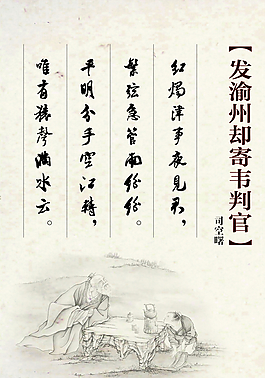 【发渝州却寄韦判官】
司空曙
红烛津亭夜见君，
繁弦急管两纷纷。
平明分手空江转，
唯有猿声满水云。